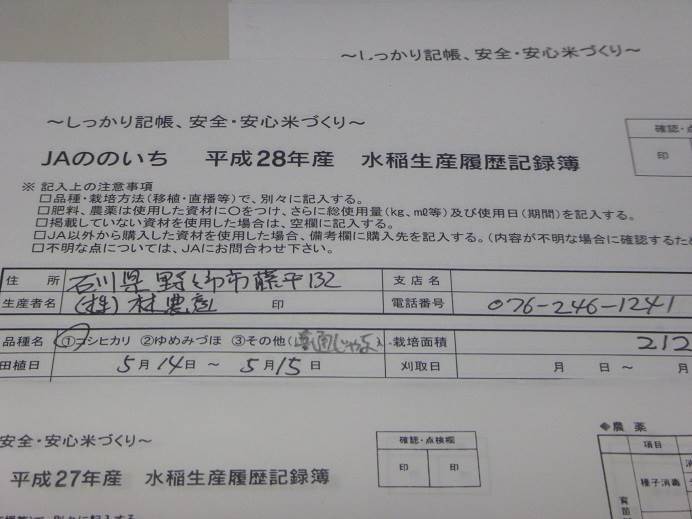 ～しっかり記帳、安全・安心米づくり～
～しっかり記帳、安全・安心米づくり～
確認・点
印
JAののいち 平成28年産 水稲生産履歴記録簿
※ 記入上の注意事項
□品種・栽培方法(移植・直播等)で、別々に記入する。
□肥料、農薬は使用した資材に〇をつけ、さらに総使用量(kg、mℓ等)及び使用日(期間)を記入する。
□掲載していない資材を使用した場合は、空欄に記入する。
□JA以外から購入した資材を使用した場合、備考欄に購入先を記入する。(内容が不明な場合に確認するため
□不明な点については、JAにお問合わせ下さい。
住 所 石川県野々市市藤平132 支店名
生産者名 (株)林農産 印 電話番号 076-246-1241
品種名 ①コシヒカリ ②ゆめみづほ ③その他( 栽培面積 212
田植日 5月14日 ～ 5月15日 刈取日 月 日 ～ 月
安全・安心米づくり～
確認・点検欄
印 印
平成27年産 水稲生産履歴記録簿
◆農 薬
項目
種子消毒
育苗